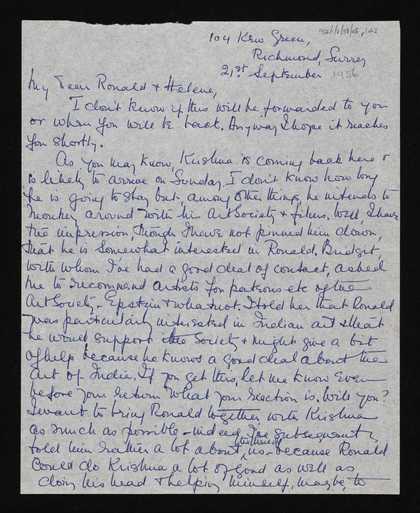 104 Kew Green,
Richmond, Surrey
21st September 1956
My Dear Ronald & Helene,
I don't know if this will be forwarded to you
or when you will be back. Anyway I hope it reaches
you shortly.
As you may know Krishna is coming back here &
is likely to arrive on Sunday. I don't know how long
he is going to stay but, among other things, he intends to
monkey around with his Art Society & films. Well, I have
the impression, though I have not pinned him down,
that he is somewhat interested in Ronald. Bridget
with whom I've had a good deal of contact, asked
me to recommend artists for patrons etc of the
Art Society - Epstein & whatnot. I told her that Ronald
was particularly interested in Indian art & that
he would support the Society & might give a bit
of help because he knows a good deal about the
art of India. If you get this, let me know even
before your return what your reaction is. Will you?
I want to bring Ronald together with Krishna
as much as possible - indeed I've subsequently
told him rather a lot about us - because Ronald
could do Krishna a lot of good as well as
doing his head & helping himself, maybe, to